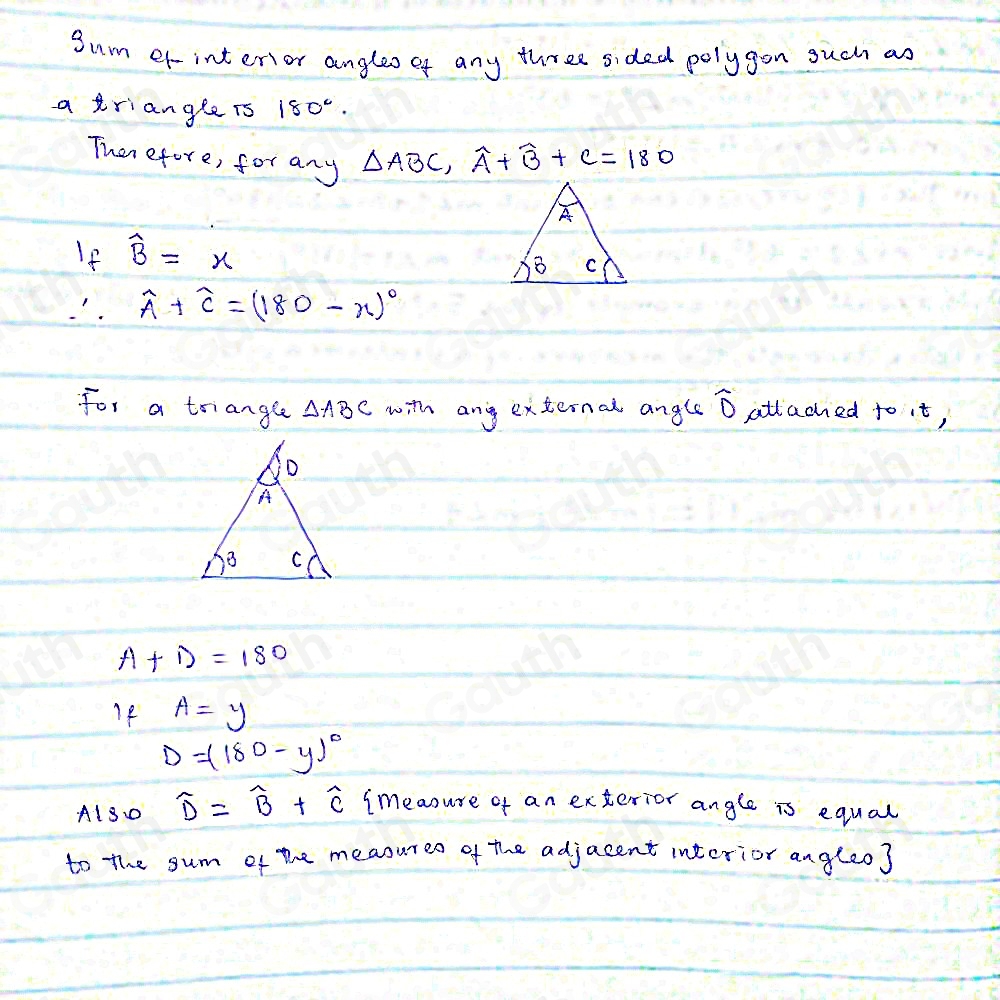 Sum of interior angles of any three sided polygon such as
a triangle is 180°.
Therefore, for any △ABC, Â + B̂ + C = 180
A
B C
If B̂ = x
∴ Â + Ĉ = (180 - x)°
For a triangle △ABC with any external angle D̂ attached to it,
D
A
B C
A + D = 180
If A = y
D = (180 - y)°
Also D̂ = B̂ + Ĉ {Measure of an exterior angle is equal
to the sum of the measures of the adjacent interior angles}
Gauth